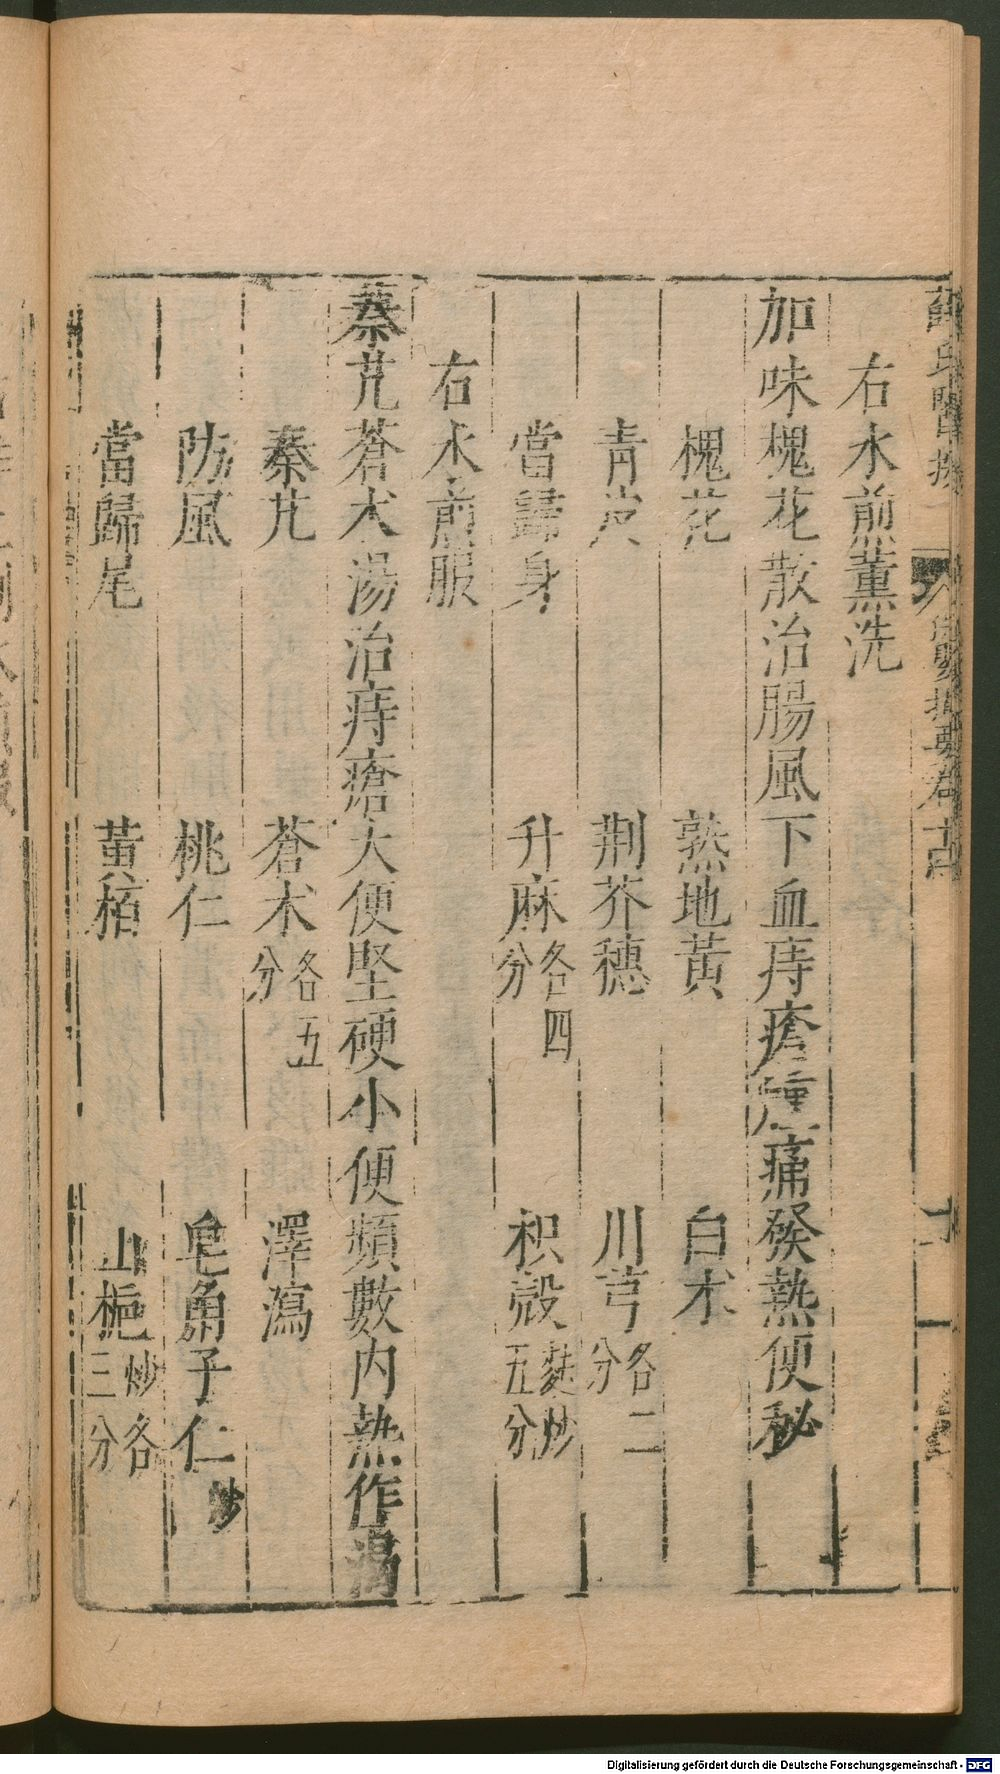 薛氏醫按 外科樞要卷
右水煎薰洗
加味槐花散治腸風下血痔瘡腫痛發熱便秘
槐花 熟地黃 白朮
青皮 荆芥穗 川芎各二分
當歸身 升麻各四分 枳殼麩炒五分
右水煎服
秦艽蒼朮湯治痔瘡大便堅硬小便頻數内熱作渴
秦艽 蒼朮各五分 澤瀉
防風 桃仁 皂角子仁炒
當歸尾 黃栢 山梔炒各三分
Digitalisierung gefördert durch die Deutsche Forschungsgemeinschaft - DFG